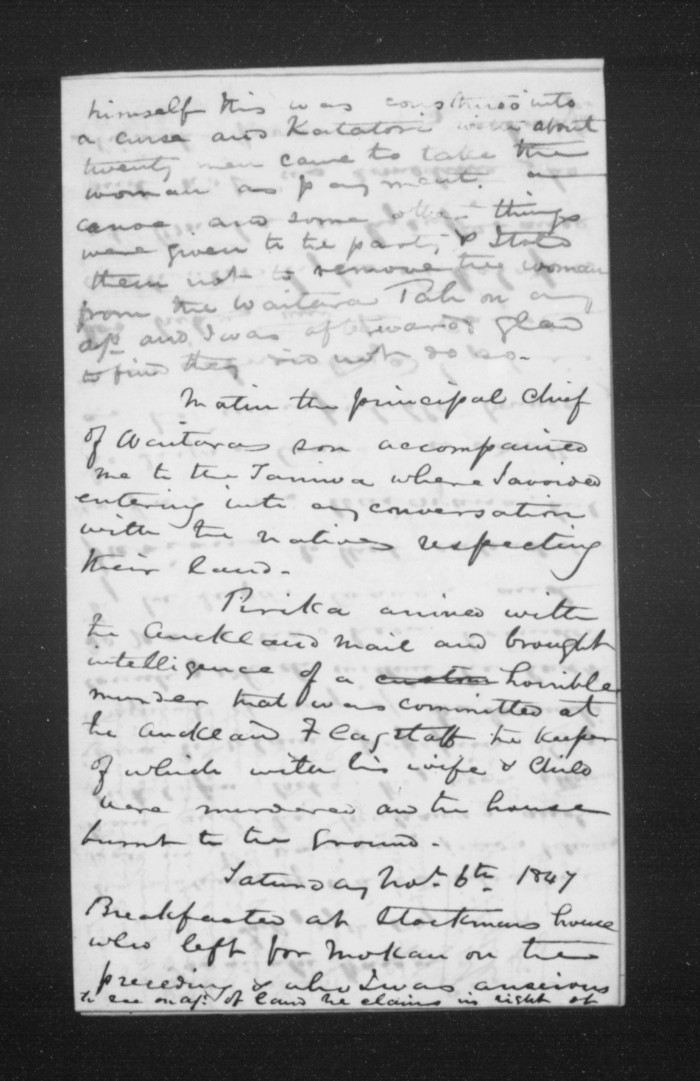 himself this was construed into
a curse and Katatori with about
twenty men came to take the
woman as payment. a
canoe and some other things
were given to the party & I told
them not to remove the woman
from the Waitara Pah on any
a/c and I was afterwards glad
to find they did not do so.
Matiu the principal Chief
of Waitaras son accompanied
me to the Taniwa where I avoided
entering into any conversation
with the natives respecting
their land.
Pirika arrived with
the Auckland mail and brought
intelligence of a horrible
murder that was committed at
the Auckland Flagstaff the Keeper
of which with his wife & Child
were murdered and the house
burnt to the ground.
Saturday Novr. 6th 1847
Breakfasted at Stockmans house
who left for Mokau on the
preceding & who I was anxious
to see on a/c of land he claims in right of